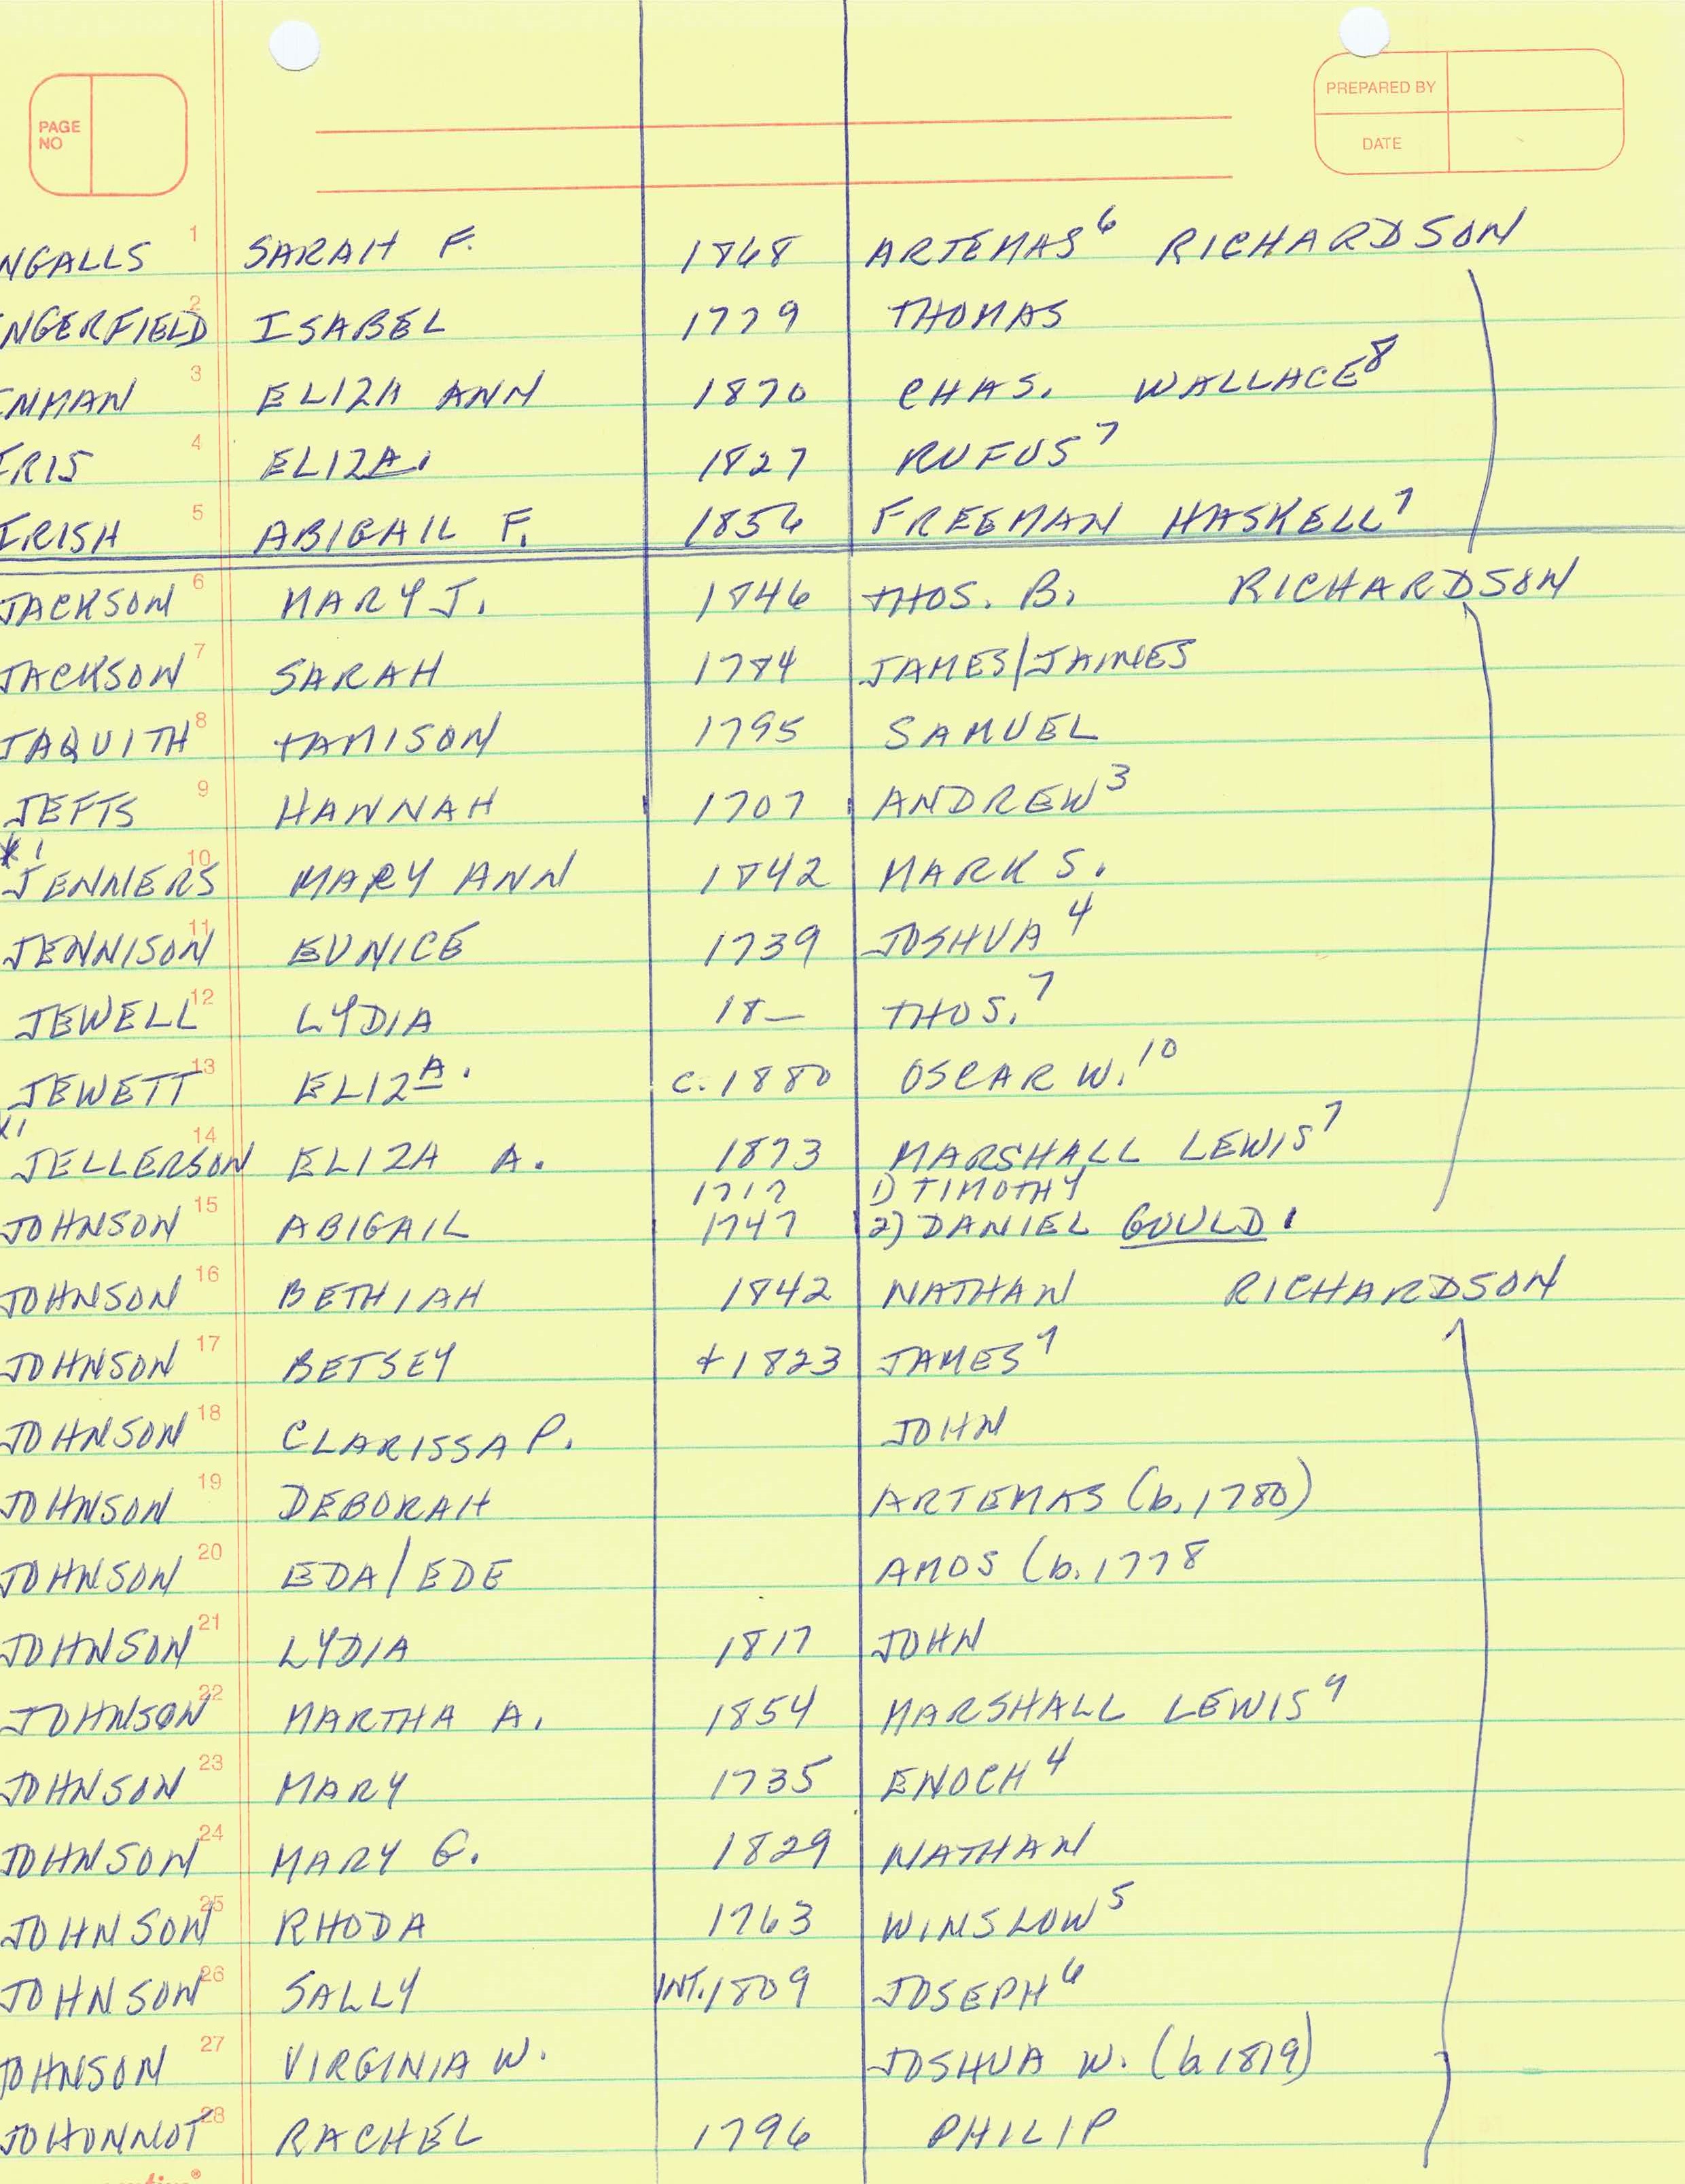 PAGE NO
PREPARED BY
DATE
NGALLS 1 SARAH F. 1868 ARTEMAS⁶ RICHARDSON
NGERFIELD 2 ISABEL 1779 THOMAS
INMAN 3 ELIZA ANN 1870 CHAS. WALLACE⁸
IRIS 4 ELIZA. 1827 RUFUS⁷
IRISH 5 ABIGAIL F. 1856 FREEMAN HASKELL⁷
JACKSON 6 MARY J. 1846 THOS. B. RICHARDSON
JACKSON 7 SARAH 1784 JAMES/JAIMES
JAQUITH 8 TAMISON 1795 SAMUEL
JEFTS 9 HANNAH 1707 ANDREW³
*1
JENNERS 10 MARY ANN 1842 MARK S.
JENNISON 11 EUNICE 1739 JOSHUA⁴
JEWELL 12 LYDIA 18— THOS.⁷
JEWETT 13 ELIZᴬ. C. 1880 OSCAR W.¹⁰
JELLERSON 14 ELIZA A. 1873 MARSHALL LEWIS⁷
1717 1) TIMOTHY
JOHNSON 15 ABIGAIL 1747 2) DANIEL GOULD
JOHNSON 16 BETHIAH 1842 NATHAN RICHARDSON
JOHNSON 17 BETSEY +1823 JAMES⁹
JOHNSON 18 CLARISSA P. JOHN
JOHNSON 19 DEBORAH ARTEMAS (b. 1780)
JOHNSON 20 EDA/EDE AMOS (b. 1778
JOHNSON 21 LYDIA 1817 JOHN
JOHNSON 22 MARTHA A. 1854 MARSHALL LEWIS⁹
JOHNSON 23 MARY 1735 ENOCH⁴
JOHNSON 24 MARY G. 1829 NATHAN
JOHNSON 25 RHODA 1763 WINSLOW⁵
JOHNSON 26 SALLY INT. 1809 JOSEPH⁶
JOHNSON 27 VIRGINIA W. JOSHUA W. (b 1819)
JOHONNOT 28 RACHEL 1796 PHILIP